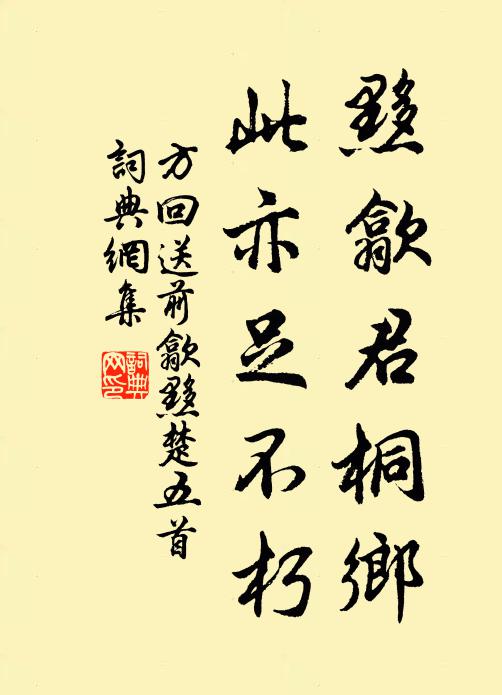 黟歙君桐鄉
此亦足不朽
方回送前歙黟楚五首
詞典網集
詞典網印